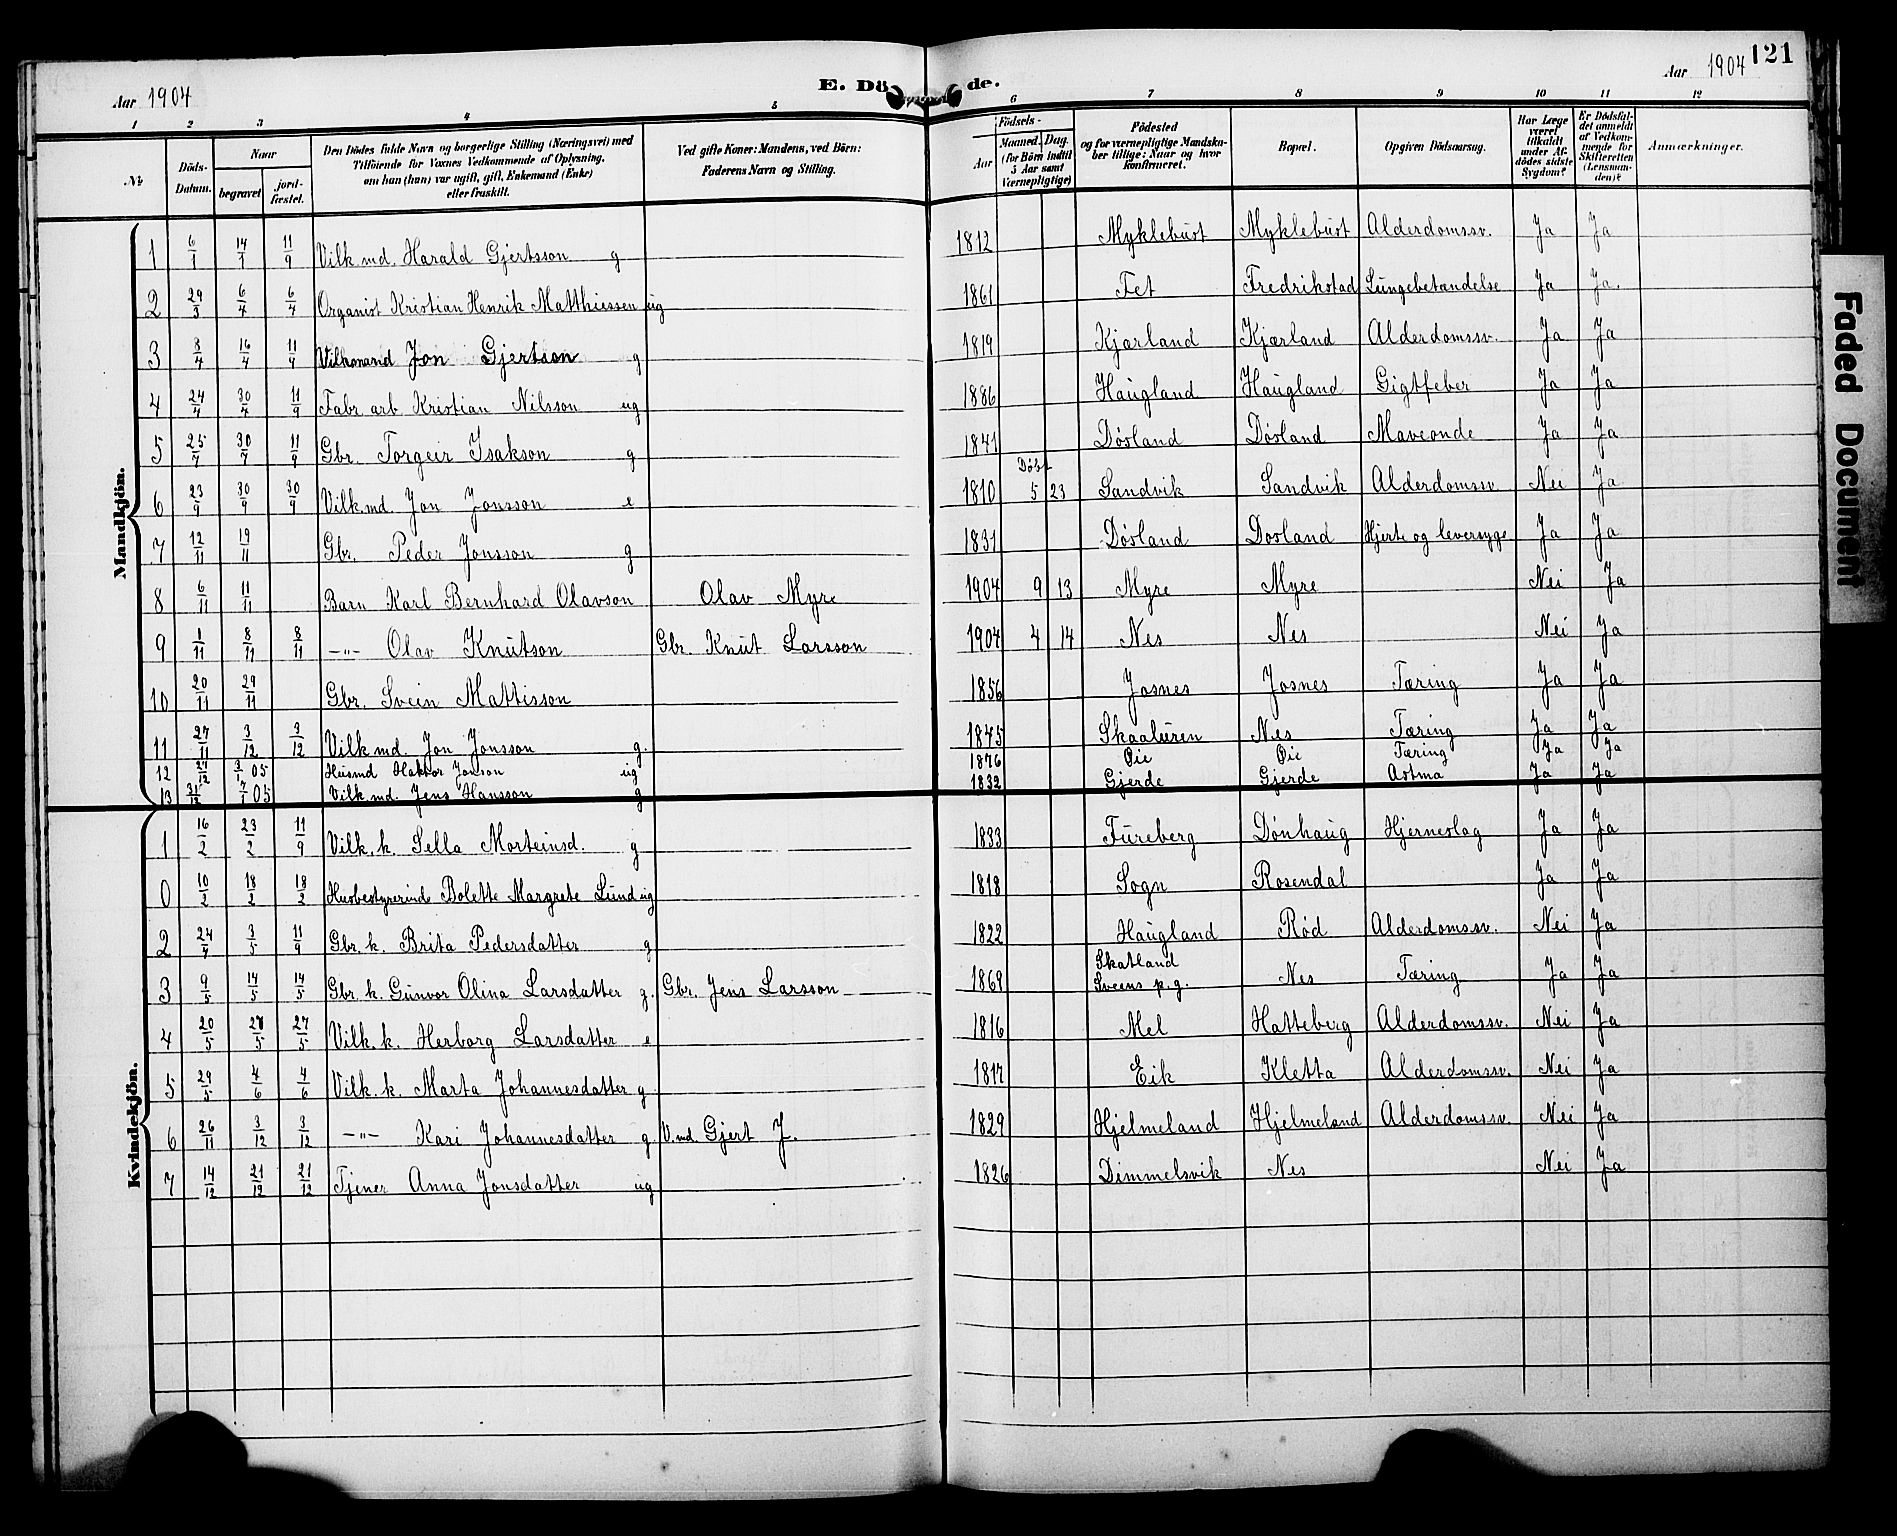 Aar 1904
E. Dö de.
Aar 1904
121
1 2 3 4 5 6 7 8 9 10 11 12
No
Döds-Datum.
Naar
begravet
jord-fæstet.
Den Dödes fulde Navn og borgerlige Stilling (Næringsvei) med Tilföiende for Voxnes Vedkommende af Oplysning, om han (hun) var ugift, gift, Enkemand (Enke) eller fraskilt.
Ved gifte Koner: Mandens, ved Börn: Faderens Navn og Stilling.
Födsels-
Aar
Maaned. Dag.
(for Börn indtil 5 Aar samt Værnepligtige)
Födested og for værnepligtige Mandskaber tillige: Naar og hvor konfirmeret.
Bopæl.
Opgiven Dödsaarsag.
Har Læge været tilkaldt under Afdödes sidste Sygdom?
Er Dödsfaldet anmeldt af Vedkommende for Skifteretten (Lensmanden)?
Anmærkninger.
Mandkjön.
1 6/1 14/1 11/9 Vilk.md. Harald Gjertsson g 1812 Myklebust Myklebust Alderdomssv. Ja Ja
2 29/3 6/4 6/4 Organist Kristian Henrik Matthiessen ug 1861 Fet Fredrikstad Lungebetændelse Ja Ja.
3 8/4 16/4 11/9 Vilkmand Jon Gjertson g 1819 Kjærland Kjærland Alderdomssv. Ja Ja
4 24/4 30/4 11/9 Fabr arb Kristian Nilsson ug 1886 Haugland Haugland Gigtfeber Ja Ja
5 25/7 30/7 11/9 Gbr. Torgeir Isakson g 1841 Døsland Døsland Maveonde Ja Ja
6 23/9 30/9 30/9 Vilk.md. Jon Jonsson e 1810 Døbt 5 23 Sandvik Sandvik Alderdomssv Nei Ja
7 12/11 19/11 Gbr. Peder Jonsson g 1831 Døsland Dosland Hjerte og leversyge Ja Ja
8 6/11 11/11 Barn Karl Bernhard Olavson Olav Myre 1904 9 13 Myre Myre Nei Ja
9 1/11 8/11 8/11 —"— Olav Knutson Gbr. Knut Larsson 1904 4 14 Nes Nes Nei Ja
10 20/11 29/11 Gbr. Svein Mattisson 1856 Josnes Josnes Tæring Ja Ja
11 27/11 3/12 3/12 Vilk md. Jon Jonsson g. 1845 Skaaluren Nes Tæring Ja Ja
12 27/12 3/1 05 Husmd Haktor Jonson ug 1876 Øie Øie Tæring Ja Ja
13 31/12 7/1 05 Vilk.md. Jens Hansson g 1832 Gjerde Gjerde Astma Ja Ja
Kvindekjön.
1 16/2 23/2 11/9 Vilk.k. Sella Morteinsd. g 1833 Fureberg Dønhaug Hjerneslag Ja Ja
0 10/2 18/2 18/2 Husbestyrerinde Bolette Margrete Lund ug 1818 Sogn Rosendal Ja Ja
2 24/4 3/5 11/9 Gbr. k. Brita Pedersdatter g 1822 Haugland Rød Alderdomssv. Nei Ja
3 9/5 14/5 14/5 Gbr k. Gunvor Olina Larsdatter g. Gbr. Jens Larsson 1869 Skatland Sveens p.g. Nes Tæring Ja Ja
4 20/5 27/5 27/5 Vilk. k. Herborg Larsdatter e 1816 Mel Hatteberg Alderdomssv. Nei Ja
5 29/5 4/6 4/6 Vilk. k. Marta Johannesdatter g 1817 Eik Kletta Alderdomssv. Nei Ja
6 26/11 3/12 3/12 —"— Kari Johannesdatter g. V.md Gjert J. 1829 Hjelmeland Hjelmeland Alderdomssv. Nei Ja
7 14/12 21/12 21/12 Tjener Anna Jonsdatter ug 1826 Dimmelsvik Nes Nei Ja
Faded Document